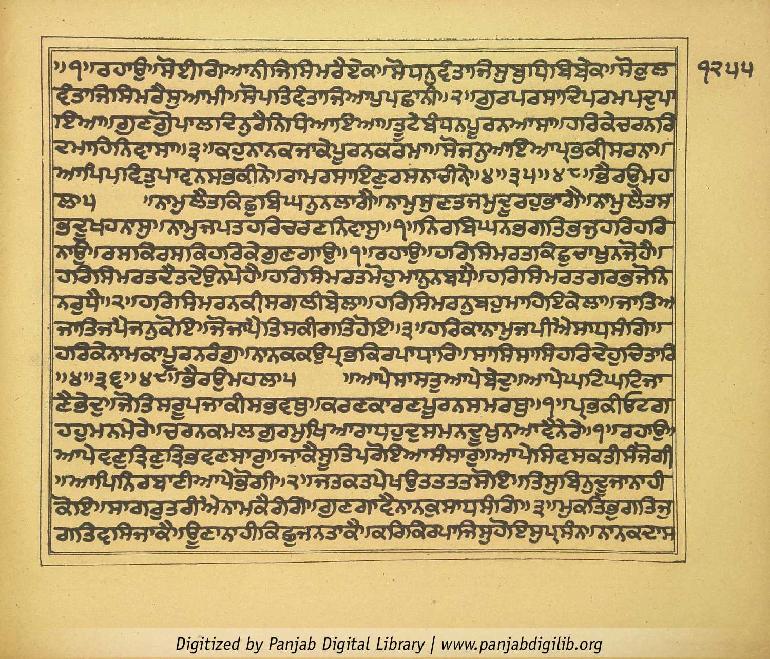 ੧੨੫੫
॥੧॥ਰਹਾਉ॥ਸੋਈਗਿਆਨੀਜਿਸਿਮਰੈਏਕ॥ਸੋਧਨਵੰਤਾਜਿਸੁਬੁਧਿਬਿਬੇਕ॥ਸੋਕੁਲ
ਵੰਤਾਜਿਸਿਮਰੈਸੁਆਮੀ॥ਸੋਪਤਿਵੰਤਾਜਿਆਪੁਪਛਾਨੀ॥੨॥ਗੁਰਪਰਸਾਦਿਪਰਮਪਦੁਪਾ
ਇਆ॥ਗੁਣਗੋੁਪਾਲਦਿਨੁਰੈਨਿਧਿਆਇਆ॥ਤੂਟੇਬੰਧਨਪੂਰਨਆਸਾ॥ਹਰਿਕੇਚਰਨਰਿ
ਦਮਾਹਿਨਿਵਾਸਾ॥੩॥ਕਹੁਨਾਨਕਜਾਕੇਪੂਰਨਕਰਮਾ॥ਸੋਜਨੁਆਇਆਪ੍ਰਭਕੀਸਰਨਾ॥
ਆਪਿਪਵਿਤੁਪਾਵਨਸਭਕੀਨੇ॥ਰਾਮਰਸਾਇਣੁਰਸਨਾਚੀਨੇ॥੪॥੩੫॥੪੮॥ਭੈਰਉਮਹ
ਲਾ੫ ॥ਨਾਮੁਲੈਤਕਿਛੁਬਿਘਨੁਨਲਾਗੈ॥ਨਾਮੁਸੁਣਤਜਮੁਦੂਰਹੁਭਾਗੈ॥ਨਾਮੁਲੈਤਸ
ਭਦੂਖਹਨਾਸੁ॥ਨਾਮੁਜਪਤਹਰਿਚਰਣਨਿਵਾਸੁ॥੧॥ਨਿਰਬਿਘਨਭਗਤਿਭਜੁਹਰਿਹਰਿ
ਨਾਉ॥ਰਸਕਿਰਸਕਿਹਰਿਕੇਗੁਣਗਾਉ॥੧॥ਰਹਾਉ॥ਹਰਿਸਿਮਰਤਕਿਛੁਚਾਖੁਨਜੋਹੈ॥
ਹਰਿਸਿਮਰਤਦੈਤਦੇਉਨਪੋਹੈ॥ਹਰਿਸਿਮਰਤਮੋਹੁਮਾਨੁਨਬਧੈ॥ਹਰਿਸਿਮਰਤਗਰਭਜੋਨਿ
ਨਰੁਧੈ॥੨॥ਹਰਿਸਿਮਰਨਕੀਸਗਲੀਬੇਲਾ॥ਹਰਿਸਿਮਰਨੁਬਹੁਮਾਹਿਇਕੇਲਾ॥ਜਾਤਿਅ
ਜਾਤਿਜਪੈਜਨੁਕੋਇ॥ਜੋਜਾਪੈਤਿਸਕੀਗਤਿਹੋਇ॥੩॥ਹਰਿਕਾਨਾਮੁਜਪੀਐਸਾਧਸੰਗਿ॥
ਹਰਿਕੇਨਾਮਕਾਪੂਰਨਰੰਗੁ॥ਨਾਨਕਕਉਪ੍ਰਭਕਿਰਪਾਧਾਰਿ॥ਸਾਸਿਸਾਸਿਹਰਿਦੇਹੁਚਿਤਾਰਿ
॥੪॥੩੬॥੪੯॥ਭੈਰਉਮਹਲਾ੫ ॥ਆਪੇਸਾਸਤੁਆਪੇਬੇਦੁ॥ਆਪੇਘਟਿਘਟਿਜਾ
ਣੈਭੇਦੁ॥ਜੋਤਿਸਰੂਪਜਾਕੀਸਭਵਥੁ॥ਕਰਣਕਾਰਣਪੂਰਨਸਮਰਥੁ॥੧॥ਪ੍ਰਭਕੀਓਟਗ
ਹਹੁਮਨਮੇਰੇ॥ਚਰਨਕਮਲਗੁਰਮੁਖਿਆਰਾਧਹੁਦੁਸਮਨਦੂਖੁਨਆਵੈਨੇਰੇ॥੧॥ਰਹਾਉ॥
ਆਪੇਵਣੁਤ੍ਰਿਣੁਤ੍ਰਿਭਵਣਸਾਰੁ॥ਜਾਕੈਸੂਤਿਪਰੋਇਆਸੰਸਾਰੁ॥ਆਪੇਸਿਵਸਕਤੀਸੰਜੋਗੀ
॥ਆਪਿਨਿਰਬਾਣੀਆਪੇਭੋਗੀ॥੨॥ਜਤਕਤਪੇਖਉਤਤਤਤਸੋਇ॥ਤਿਸੁਬਿਨੁਦੂਜਾਨਾਹੀ
ਕੋਇ॥ਸਾਗਰੁਤਰੀਐਨਾਮਕੈਰੰਗਿ॥ਗੁਣਗਾਵੈਨਾਨਕੁਸਾਧਸੰਗਿ॥੩॥ਮੁਕਤਿਭੁਗਤਿਜੁ
ਗਤਿਵਸਿਜਾਕੈ॥ਊਣਾਨਾਹੀਕਿਛੁਜਨਤਾਕੈ॥ਕਰਿਕਿਰਪਾਜਿਸੁਹੋਇਸੁਪ੍ਰਸੰਨ॥ਨਾਨਕਦਾਸ
Digitized by Panjab Digital Library | www.panjabdigilib.org